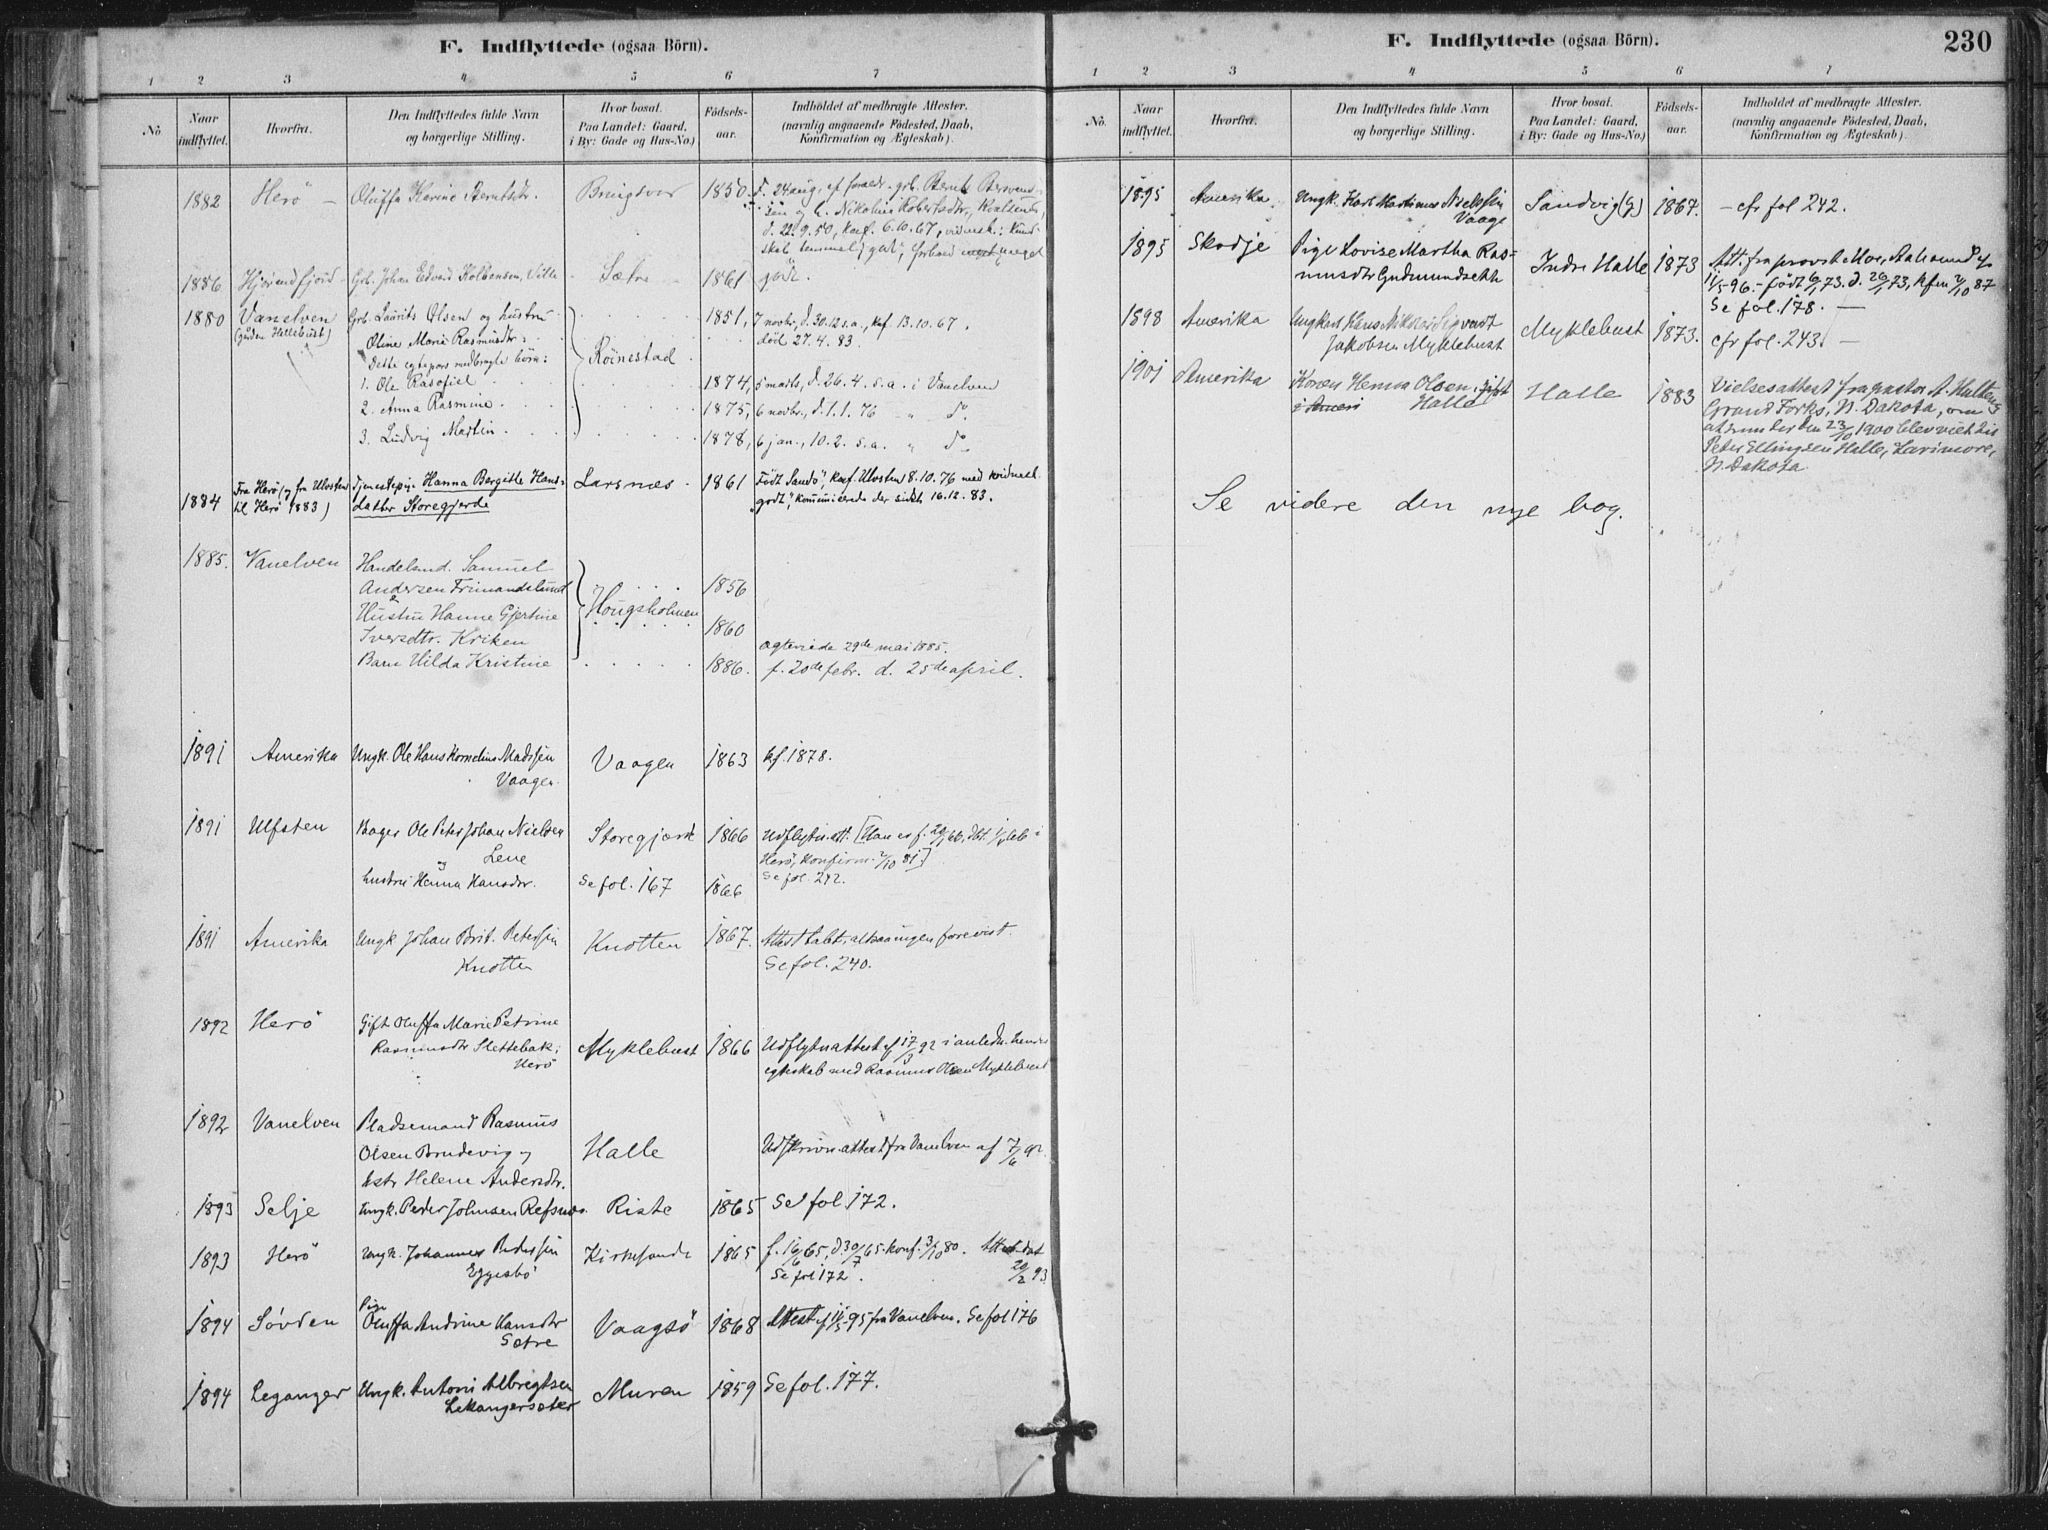 F. Indflyttede (ogsaa Börn).
1 2 3 4 5 6 7
No.
Naar indflyttet.
Hvorfra.
Den Indflyttedes fulde Navn
og borgerlige Stilling.
Hvor bosat.
Paa Landet: Gaard,
i By: Gade og Hus-No.)
Födsels-
aar.
Indholdet af medbragte Attester.
(navnlig angaaende Födested, Daab,
Konfirmation og Ægteskab).
1882 Herö Oluffa Karine Berntsdr. 1850
d. 22.9.50, konf. 6.10.67,
1886 Hjörundfjord Grb. Johan Edvard Sætre 1861 godt.
1880 Vanelven Grb. Laurits Olsen og hustru 1851, 7 novbr., d. 30.12 s.a., kof. 13.10.67.
(gården Hellebust) Oline Marie Rasmusdr: död 27.4.83.
Dette egtepars medbragte börn: Röinestad
1. Ole Rasofiel 1874, 5 marts, d. 26.4. s.a. i Vanelven
2. Anna Rasmine 1875, 6 novbr., d. 1.1.76 " do.
3. Ludvig Martin 1878, 6 jan., 10.2. s.a. " do
1884 Fra Herö (og fra Ulvsten Hanna Bergitte Hans- Larsnæs 1861 Födt Sandö, konf. Ulvsten 8.10.76 med
til Herö 1883) datter Storegjerde godt", kommunicerede der sidst 16.12.83.
1885. Vanelven Handelsmd. Samuel
Andersen Frimandslund 1856
& Hougsholmen
Hustru Hanne Gjertine 1860
Iversdtr. Kriken ægteviede 29de mai 1885.
Barn Hilda Kristine 1886. f. 20de febr. d. 25de april.
1891 Amerika Ungk. Ole Hans Kornelius Madssen Vaagen 1863 kf. 1878.
Vaagen
1891 Ulfsten Bager Ole Peter Johan Nielsen Storegjærde 1866 Udflytn. att.
Lene Herö, konfirm. 2/10 81]
og
hustru Hanna Hansdr. Se fol. 167 1866 Se fol. 242.
1891 Amerika Ungk Johan Brit. Peterssen Knotten 1867. Attest tabt, altsaa ingen forevist.
Knotten Se fol. 240.
1892 Herö Gift Oluffa Marie Petrine
Rasmusdtr Slettebak, Myklebust 1866 Udflytn attest af 17/3 92 i anledn. hendes
Herö egteskab med Rasmus Olsen Myklebust
1892 Vanelven Pladsemand Rasmus
Olsen Brudevig og Halle Udskrivn. attest fra Vanelven af 7/6 92.
hstr Helene Andersdtr.
1893 Selje Ungk. Peder Johnsen Refsnæs. Riste 1865 Se fol 172.
1893 Herö Ungk. Johannes Pederssen Kirkesande 1865 f. 16/6 65, d. 30/7 65. konf. 3/10 80. Attest dat
Eggesbö Se fol 172. 20/2 93.
1894 Sövden Pige
Oluffa Andrine Hansdtr Vaagsö 1868 Attest af 11/5 95 fra Vanelven. Se fol 176
Sætre
1894 Leganger Ungk. Anton Albregtsen Muren 1859 Se fol. 177.
Lekangersæter
F. Indflyttede (ogsaa Börn). 230
1 2 3 4 5 6 7
No.
Naar indflyttet.
Hvorfra.
Den Indflyttedes fulde Navn
og borgerlige Stilling.
Hvor bosat.
Paa Landet: Gaard,
i By: Gade og Hus-No.)
Födsels-
aar.
Indholdet af medbragte Attester.
(navnlig angaaende Födested, Daab,
Konfirmation og Ægteskab).
1895 Amerika Ungk. Karl Martinus Nielssen Sandvig (g) 1867. – cfr fol 242.
Vaage
1895 Skodje Pige Lovise Martha Ras- Indre Halle 1873 Att. fra provst Aalesund af
musdtr Gudmundsekk 11/5 96. – födt 6/1 73. d. 26/1 73, kfm 2/10 87
Se fol. 178. –
1898 Amerika Ungkarl Hans Nikolai Sigvardt Myklebust 1873. cfr fol. 243. –
Jakobsen Myklebust
1901 Amerika Hanna Olsen, gift Halle 1883 Vielsesattest fra pastor A. Hulteng
Halle Grand Forks, N. Dakota, om
at den 23/10 1900 blev viet til
Peter Ellingsen Halle, Larimore,
N. Dakota
Se videre den nye bog.